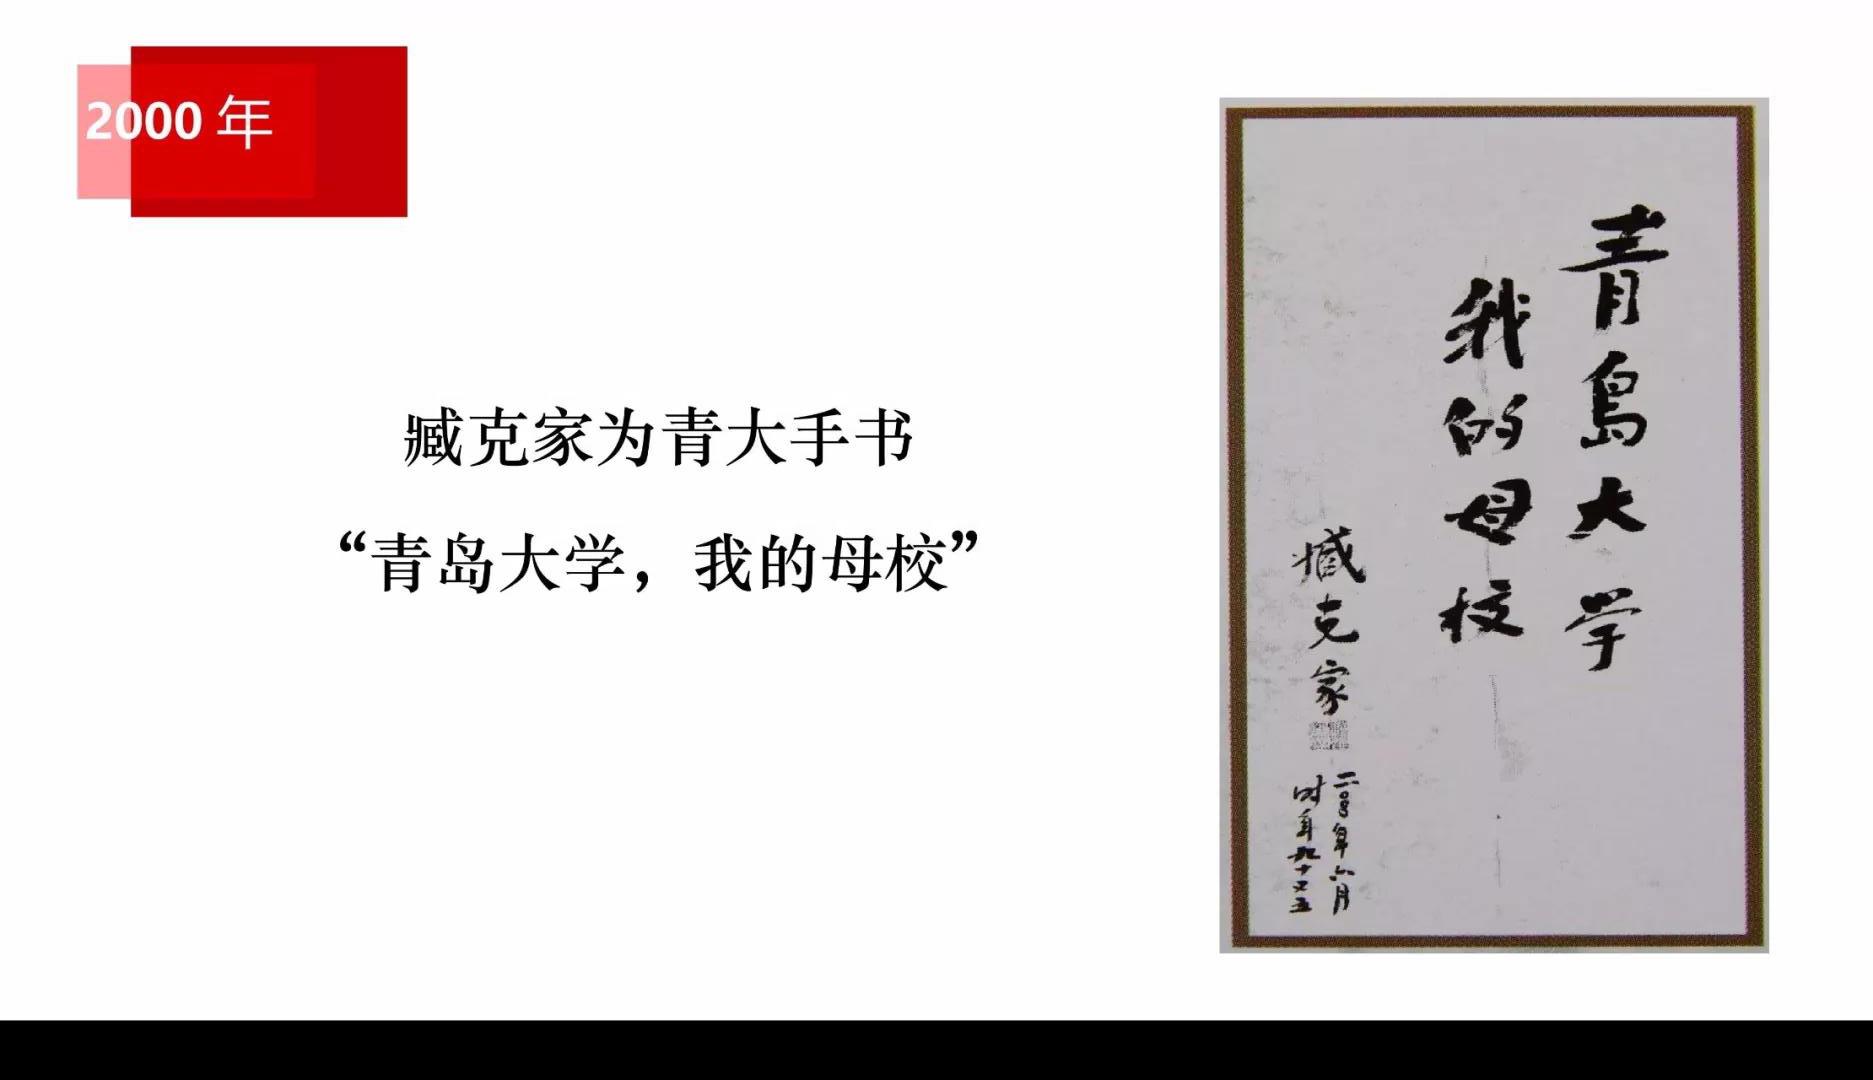 2000 年
臧克家为青大手书
“青岛大学，我的母校”
青島大学
我的母校
臧克家
二〇〇〇年六月
时年九十又五